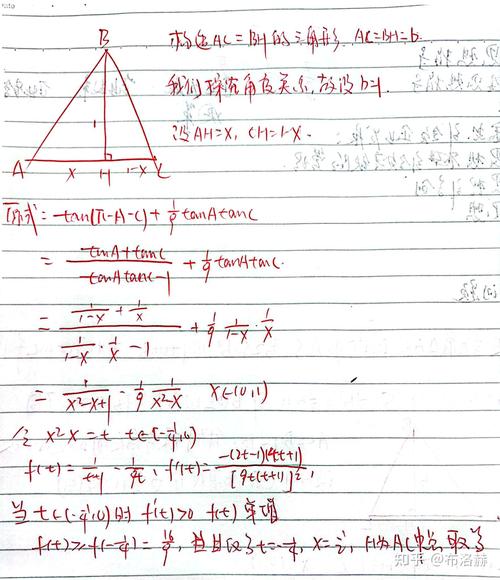 B
构造AC=BH的三角形 AC=BH=b
我们探究角度关系,故设b=1
设AH=x, CH=1-x.
1
A x H 1-x C
原式=tan(π-A-C)+\frac{1}{9}tanAtanC
=\frac{tanA+tanC}{tanAtanC-1}+\frac{1}{9}tanAtanC.
=\frac{\frac{1}{1-x}+\frac{1}{x}}{\frac{1}{1-x}·\frac{1}{x}-1}+\frac{1}{9}\frac{1}{1-x}·\frac{1}{x}
=\frac{1}{x²-x+1}-\frac{1}{9}\frac{1}{x²-x} x∈(0,1)
令 x²-x=t t∈[-\frac{1}{4},0)
f(t)=\frac{1}{t+1}-\frac{1}{9t}, f'(t)=\frac{-(2t-1)(4t+1)}{[9t(t+1)]²},
当t∈(-\frac{1}{4},0)时 f'(t)>0 f(t)单增
f(t)≥f(-\frac{1}{4})=\frac{16}{9}, 当且仅当t=-\frac{1}{4}, x=\frac{1}{2}, H为AC中点取等
知乎 @布洛赫